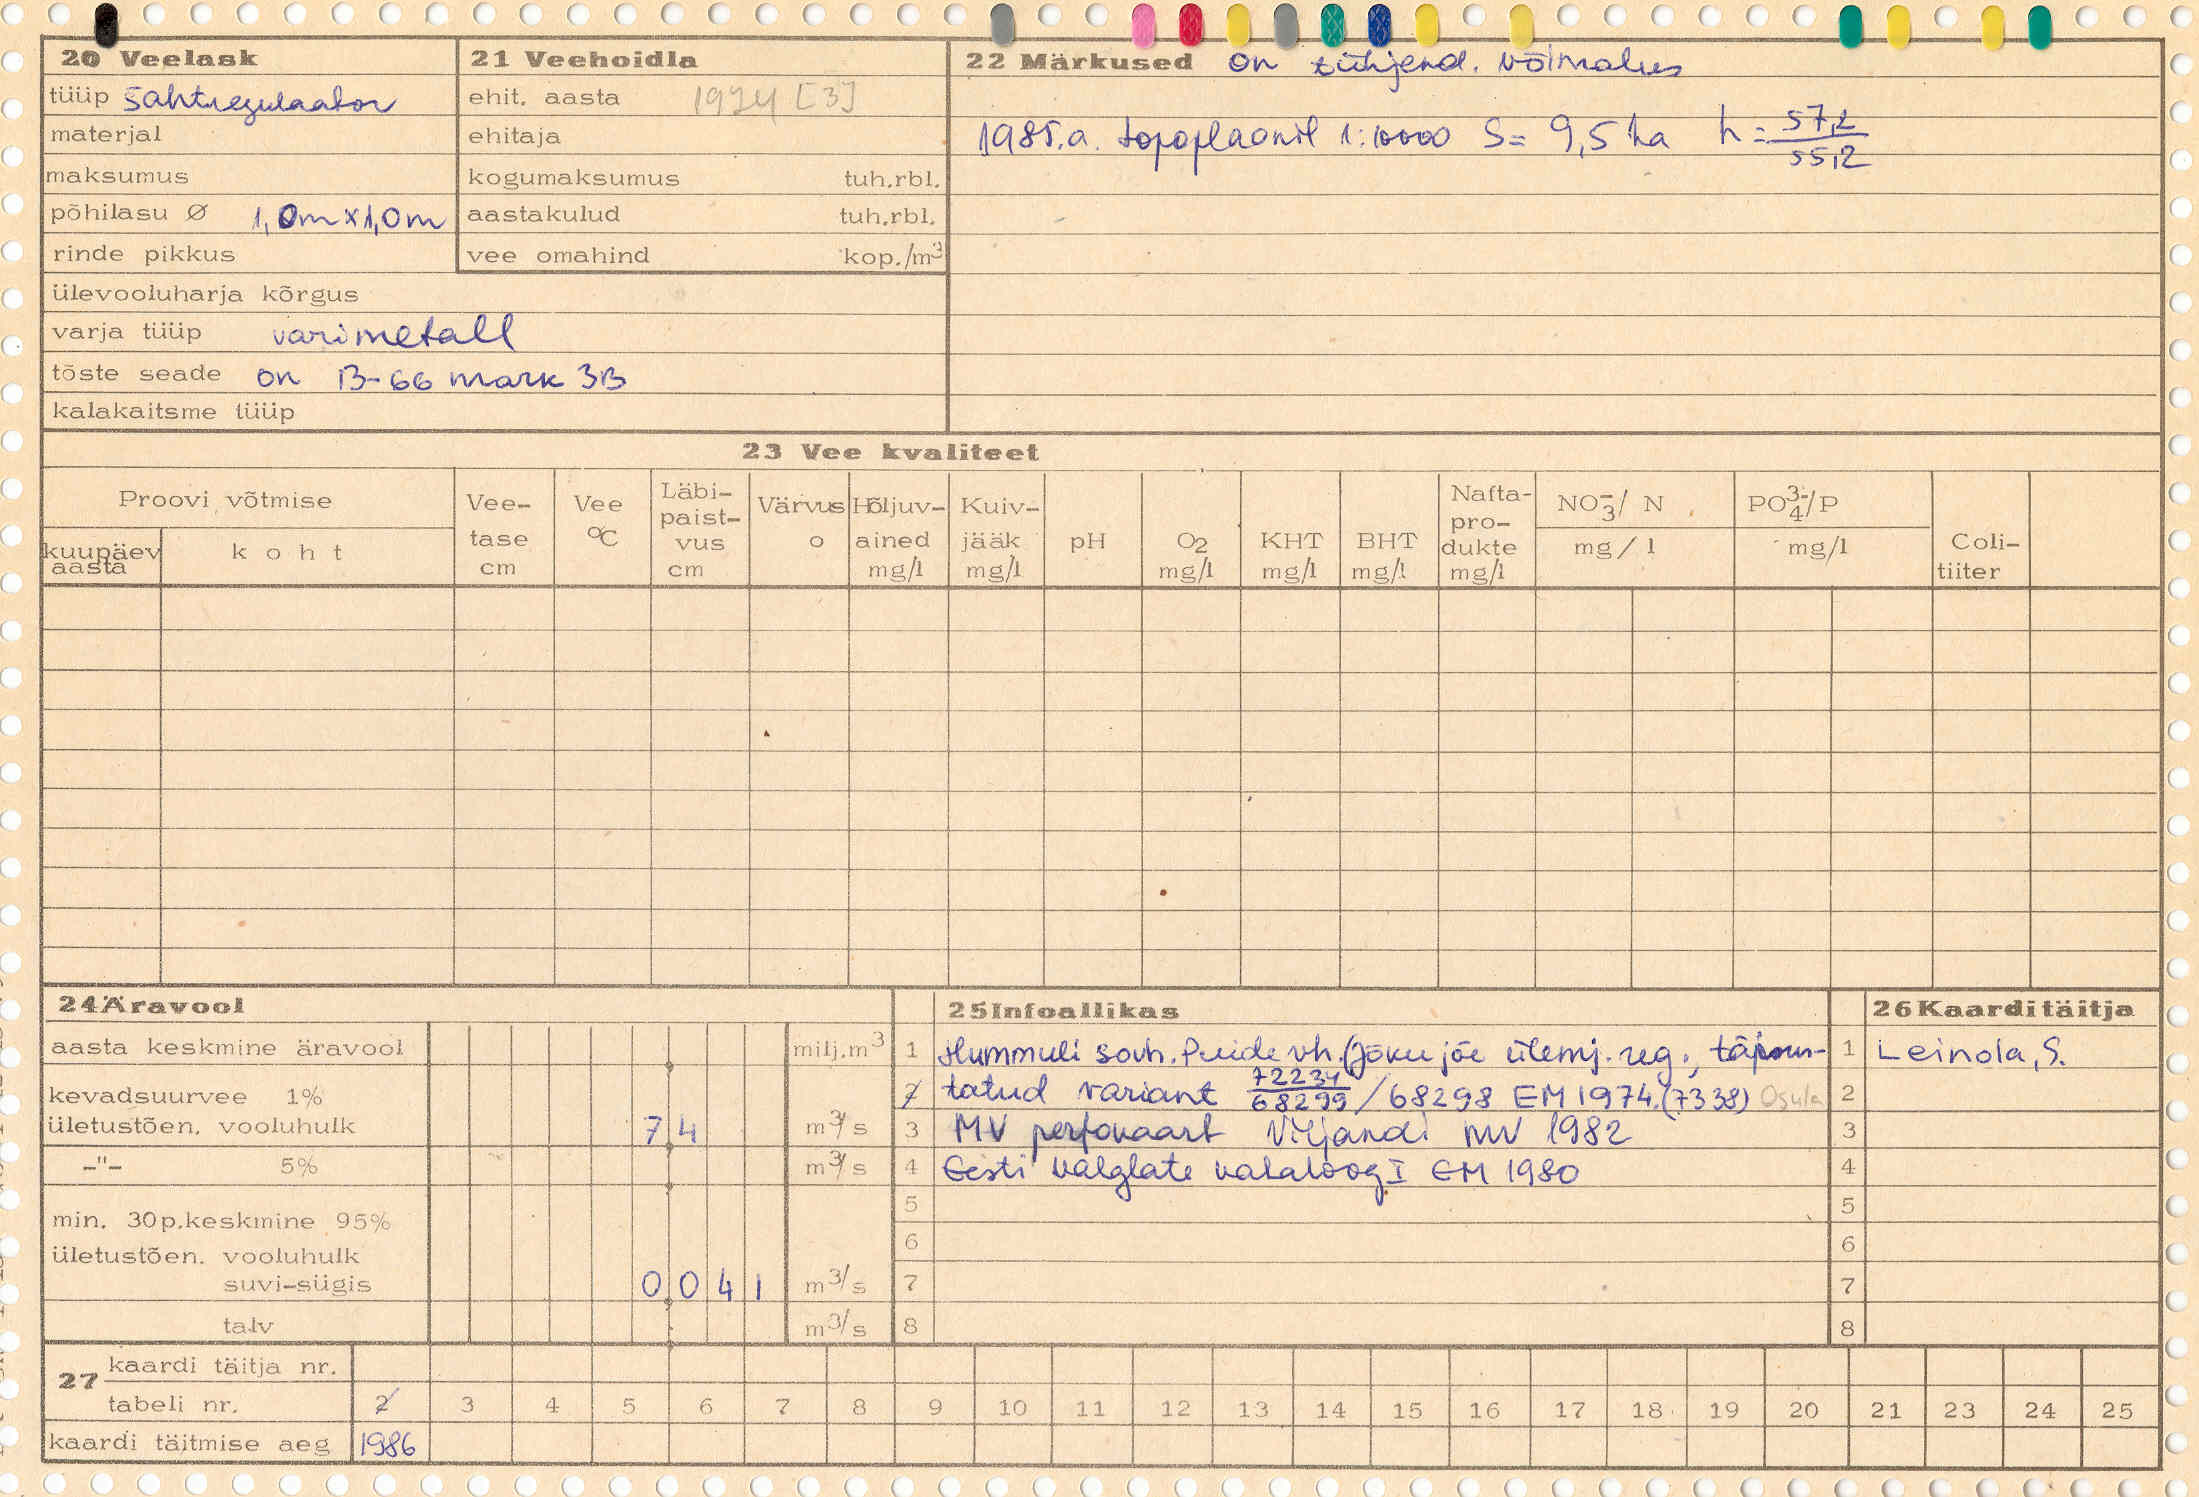 20 Veelask
tüüp Šahtregulaator
materjal
maksumus
põhilasu Ø 1,0m x 1,0m
rinde pikkus
ülevooluharja kõrgus
varja tüüp varimetall
tõste seade on B-66 mark 3B
kalakaitsme tüüp
21 Veehoidla
ehit. aasta 1974 [3]
ehitaja
kogumaksumus tuh.rbl.
aastakulud tuh.rbl.
vee omahind kop./m³
22 Märkused on tühjend. võimalus
1985.a. topoplaanil 1:10000 S= 9,5 ha h = 57,2
55,2
23 Vee kvaliteet
Proovi võtmise
kuupäev aasta
koht
Vee-tase cm
Vee °C
Läbi-paist-vus cm
Värvus o
Hõljuv-ained mg/l
Kuiv-jääk mg/l
pH
O2 mg/l
KHT mg/l
BHT mg/l
Nafta-pro-dukte mg/l
NO3-/ N
mg/l
PO4 3-/P
mg/l
Coli-tiiter
24 Äravool
aasta keskmine äravool milj.m³
kevadsuurvee 1%
ületustõen. vooluhulk 7 4 m³/s
-"- 5% m³/s
min. 30p.keskmine 95%
ületustõen. vooluhulk
suvi-sügis 0 0 4 1 m³/s
talv m³/s
25 Infoallikas
1 Hummuli sovh. Puide vh. (Jõku jõe ülemj. reg., täpsus-
2 tatud variant 72234/68299 / 68298 EM 1974. (7338) Osula
3 MV perfokaart Viljandi MV 1982
4 Eesti valglate kataloog I EM 1980
5
6
7
8
26 Kaarditäitja
1 Leinola, S.
2
3
4
5
6
7
8
27 kaardi täitja nr.
tabeli nr. 2 3 4 5 6 7 8 9 10 11 12 13 14 15 16 17 18 19 20 21 23 24 25
kaardi täitmise aeg 1986